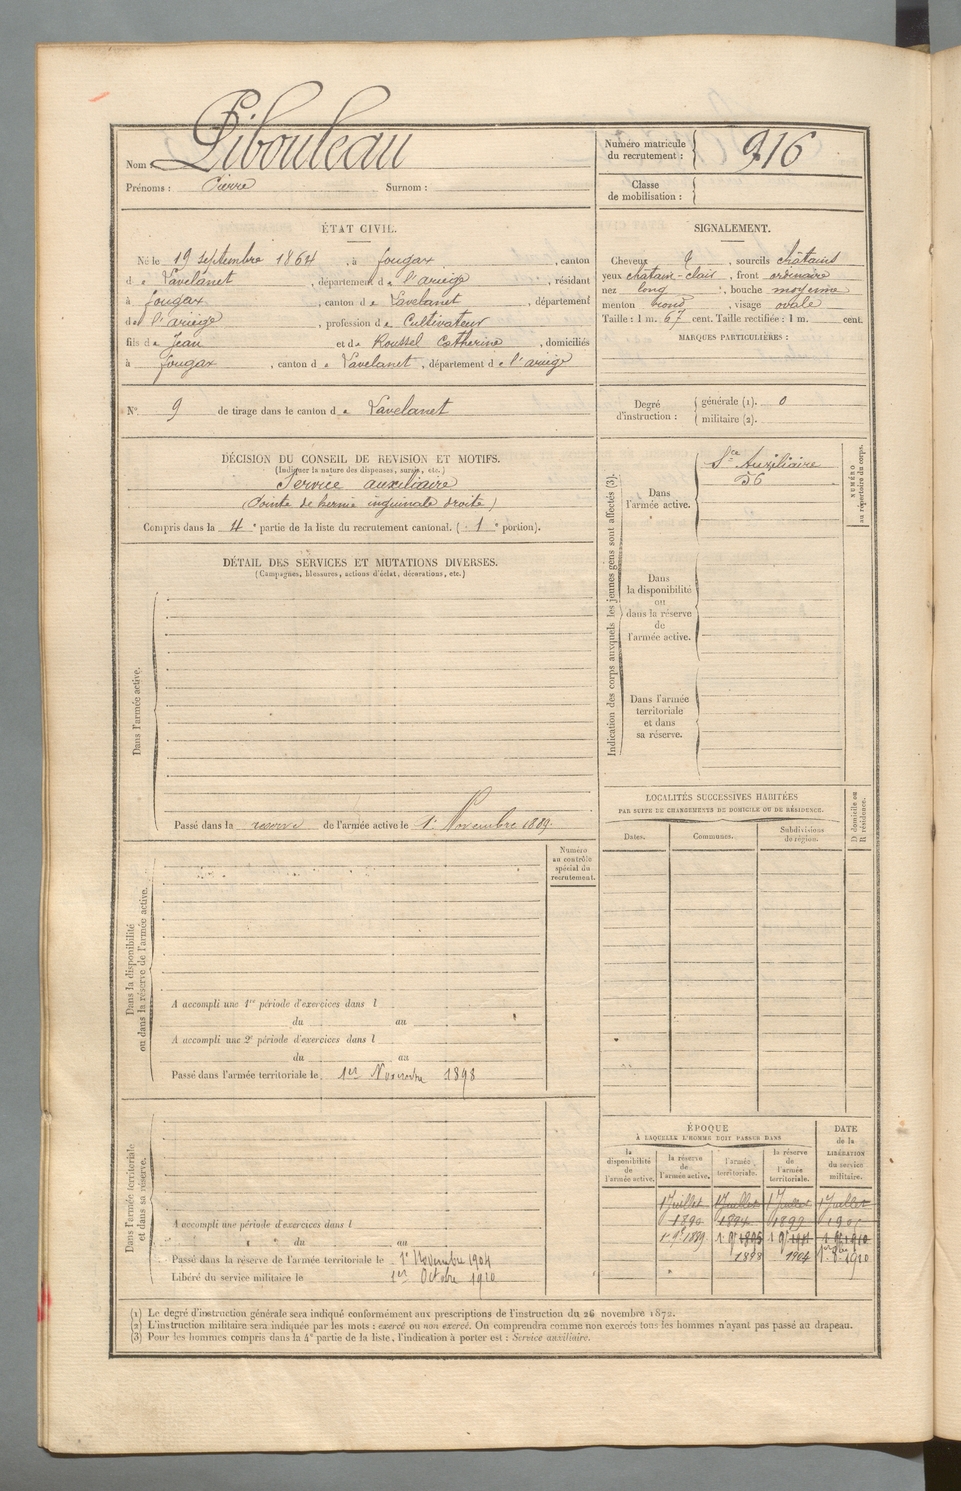 Nom : Pibouleau
Prénoms : Pierre Surnom :
Numéro matricule du recrutement : 916
Classe de mobilisation :
ÉTAT CIVIL.
Né le 19 septembre 1864, à fougax, canton
de Lavelanet, département de l'ariège, résidant
à fougax, canton de Lavelanet, département
de l'ariège, profession de Cultivateur
fils de Jean et de Roussel Catherine, domiciliés
à fougax, canton de Lavelanet, département de l'ariège
N° 9 de tirage dans le canton de Lavelanet
SIGNALEMENT.
Cheveux, sourcils châtains
yeux châtain-clair, front ordinaire
nez long, bouche moyenne
menton rond, visage ovale
Taille : 1 m. 67 cent. Taille rectifiée : 1 m. cent.
MARQUES PARTICULIÈRES :
Degré d'instruction : générale (1). 0
militaire (2).
DÉCISION DU CONSEIL DE REVISION ET MOTIFS.
(Indiquer la nature des dispenses, sursis, etc.)
Service auxiliaire
(Pointe de hernie inguinale droite)
Compris dans la 4e partie de la liste du recrutement cantonal. (1e portion).
DÉTAIL DES SERVICES ET MUTATIONS DIVERSES.
(Campagnes, blessures, actions d'éclat, décorations, etc.)
Dans l'armée active.
Passé dans la reserve de l'armée active le 1er Novembre 1889.
Indication des corps auxquels les jeunes gens sont affectés (3).
Dans l'armée active.
Sce Auxiliaire
56
NUMÉRO au répertoire du corps.
Dans la disponibilité ou dans la réserve de l'armée active.
Dans l'armée territoriale et dans sa réserve.
LOCALITÉS SUCCESSIVES HABITÉES
PAR SUITE DE CHANGEMENTS DE DOMICILE OU DE RÉSIDENCE.
Dates. Communes. Subdivisions de région. D domicile ou R résidence.
Numéro au contrôle spécial du recrutement.
Dans la disponibilité ou dans la réserve de l'armée active.
A accompli une 1re période d'exercices dans l
du au
A accompli une 2e période d'exercices dans l
du au
Passé dans l'armée territoriale le 1er Novembre 1898
Dans l'armée territoriale et dans sa réserve.
A accompli une période d'exercices dans l
du au
Passé dans la réserve de l'armée territoriale le 1er Novembre 1904
Libéré du service militaire le 1er Octobre 1910
ÉPOQUE
À LAQUELLE L'HOMME DOIT PASSER DANS
DATE de la LIBÉRATION du service militaire.
la disponibilité de l'armée active. la réserve de l'armée active. l'armée territoriale. la réserve de l'armée territoriale.
1 Juillet 1 Juillet 1 Juillet 1 Juillet
1890 1894 1899
1898 1904 1910
(1) Le degré d'instruction générale sera indiqué conformément aux prescriptions de l'instruction du 26 novembre 1872.
(2) L'instruction militaire sera indiquée par les mots : exercé ou non exercé. On comprendra comme non exercés tous les hommes n'ayant pas passé au drapeau.
(3) Pour les hommes compris dans la 4e partie de la liste, l'indication à porter est : Service auxiliaire.